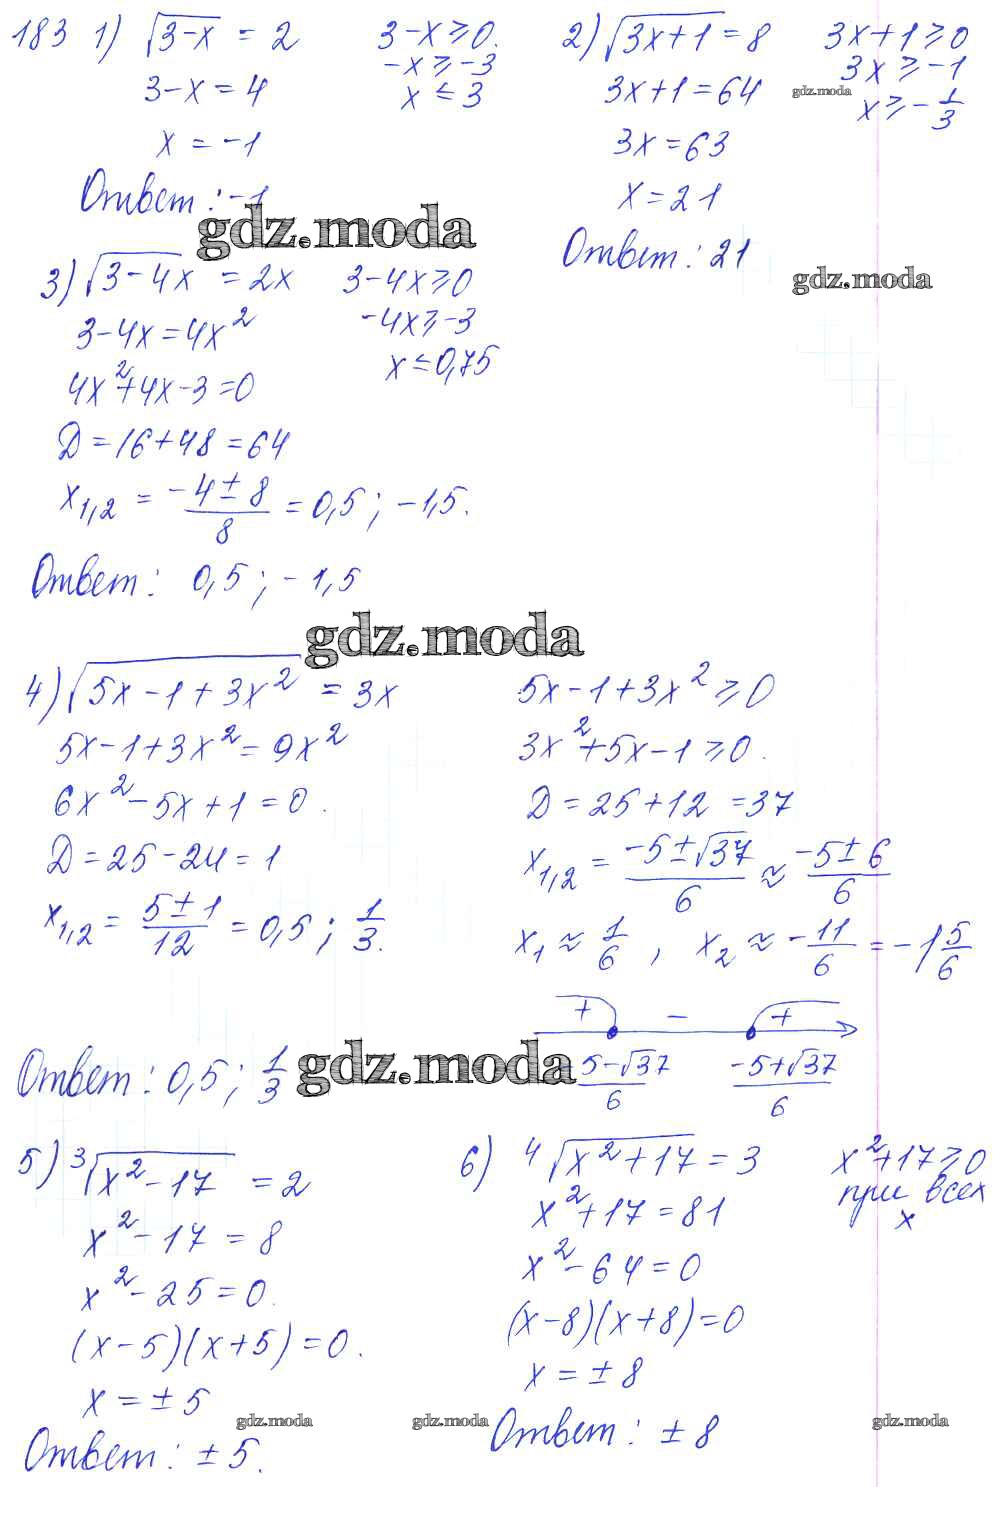 183 1) √(3-x) = 2
3-x ≥ 0.
-x ≥ -3
x ≤ 3
3-x = 4
x = -1
Ответ: -1
2) √(3x+1) = 8
3x+1 ≥ 0
3x ≥ -1
x ≥ -1/3
3x+1 = 64
3x = 63
x = 21
Ответ: 21
gdz.moda
gdz.moda
gdz.moda
3) √(3-4x) = 2x
3-4x ≥ 0
-4x ≥ -3
x ≤ 0,75
3-4x = 4x²
4x²+4x-3 = 0
Д = 16+48 = 64
x₁,₂ = (-4±8)/8 = 0,5; -1,5.
Ответ: 0,5; -1,5
gdz.moda
4) √(5x-1+3x²) = 3x
5x-1+3x² = 9x²
6x²-5x+1 = 0.
Д = 25-24 = 1
x₁,₂ = (5±1)/12 = 0,5; 1/3.
5x-1+3x² ≥ 0
3x²+5x-1 ≥ 0.
Д = 25+12 = 37
x₁,₂ = (-5±√37)/6 ≈ (-5±6)/6
x₁ ≈ 1/6, x₂ ≈ -11/6 = -1 5/6
+ - +
5-√37/6 (-5+√37)/6
Ответ: 0,5; 1/3
gdz.moda
5) ³√(x²-17) = 2
x²-17 = 8
x²-25 = 0.
(x-5)(x+5) = 0.
x = ±5
Ответ: ±5.
6) ⁴√(x²+17) = 3
x²+17 ≥ 0
при всех
x
x²+17 = 81
x²-64 = 0
(x-8)(x+8) = 0
x = ±8
Ответ: ±8
gdz.moda
gdz.moda
gdz.moda